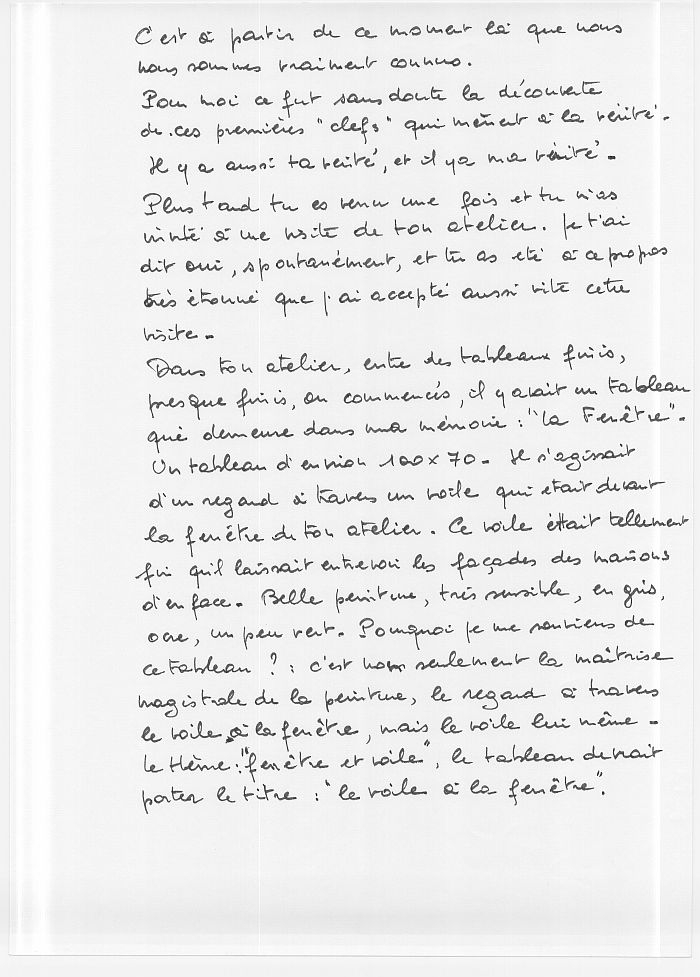 C'est à partir de ce moment là que nous
nous sommes vraiment connus.
Pour moi ce fut sans doute la découverte
de ces premières "clefs" qui mènent à la vérité.
Il y a aussi ta verité, et il y a ma vérité.
Plus tard tu es venu une fois et tu m'as
invité à une visite de ton atelier. Je t'ai
dit oui, spontanément, et tu as eté à ce propos
très étonné que j'ai accepté aussi vite cette
visite.
Dans ton atelier, entre des tableaux finis,
presque finis, ou commencés, il y avait un tableau
qui demeure dans ma mémoire : "la Fenêtre".
Un tableau d'environ 100x70. Il s'agissait
d'un regard à travers un voile qui etait devant
la fenêtre de ton atelier. Ce voile était tellement
fin qu'il laissait entrevoir les façades des maisons
d'en face. Belle peinture, très sensible, en gris,
ocre, un peu vert. Pourquoi je me souviens de
ce tableau ? : c'est non seulement la maîtrise
magistrale de la peinture, le regard à travers
le voile à la fenêtre, mais le voile lui même -
le thème : "fenêtre et voile", le tableau devrait
porter le titre : "le voile à la fenêtre".